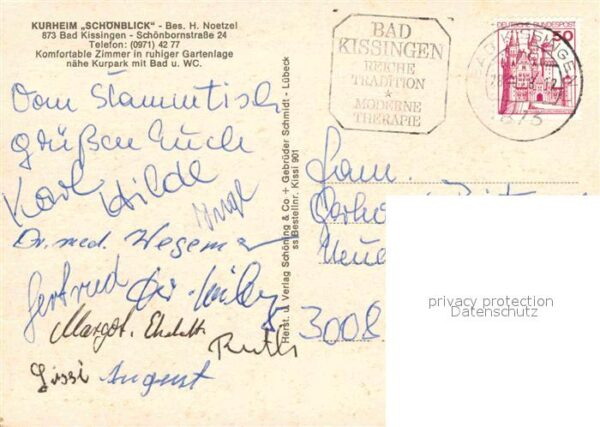 KURHEIM „SCHÖNBLICK" - Bes. H. Noetzel
873 Bad Kissingen - Schönbornstraße 24
Telefon: (0971) 42 77
Komfortable Zimmer in ruhiger Gartenlage
nähe Kurpark mit Bad u. WC.
Vom Stammtisch
grüßen Euch
Karl Hilde
Inge
Dr. med. Wegener
Gertrud
Margot
Ruth
Sissi August
Herst. u. Verlag Schöning & Co + Gebrüder Schmidt - Lübeck
ss Bestellnr. Kissi 901
BAD
KISSINGEN
REICHE
TRADITION
★
MODERNE
THERAPIE
DEUTSCHE BUNDESPOST
50
BAD KISSINGEN
873
Fam.
3008
privacy protection
Datenschutz